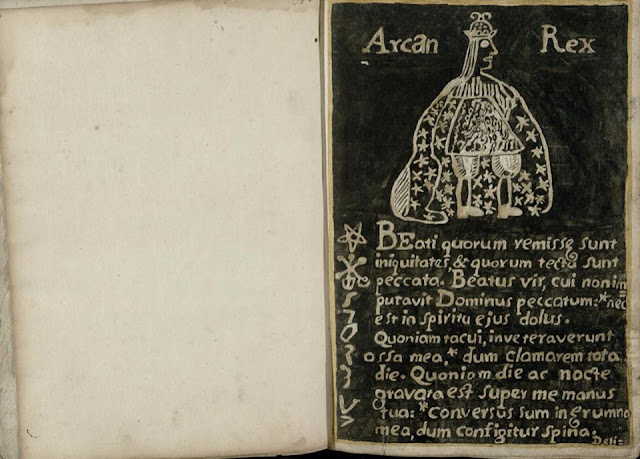 Arcan Rex
BEati quorum remissę sunt
iniquitates & quorum tecta sunt
peccata. Beatus vir, cui non im
putavit Dominus peccatum:* nec
est in spiritu ejus dolus.
Quoniam tacui, inveteraverunt
ossa mea,* dum clamarem tota
die. Quoniam die ac nocte
gravata est super me manus
tua:* Conversus sum in ęrumna
mea, dum configitur spina.
Deli=